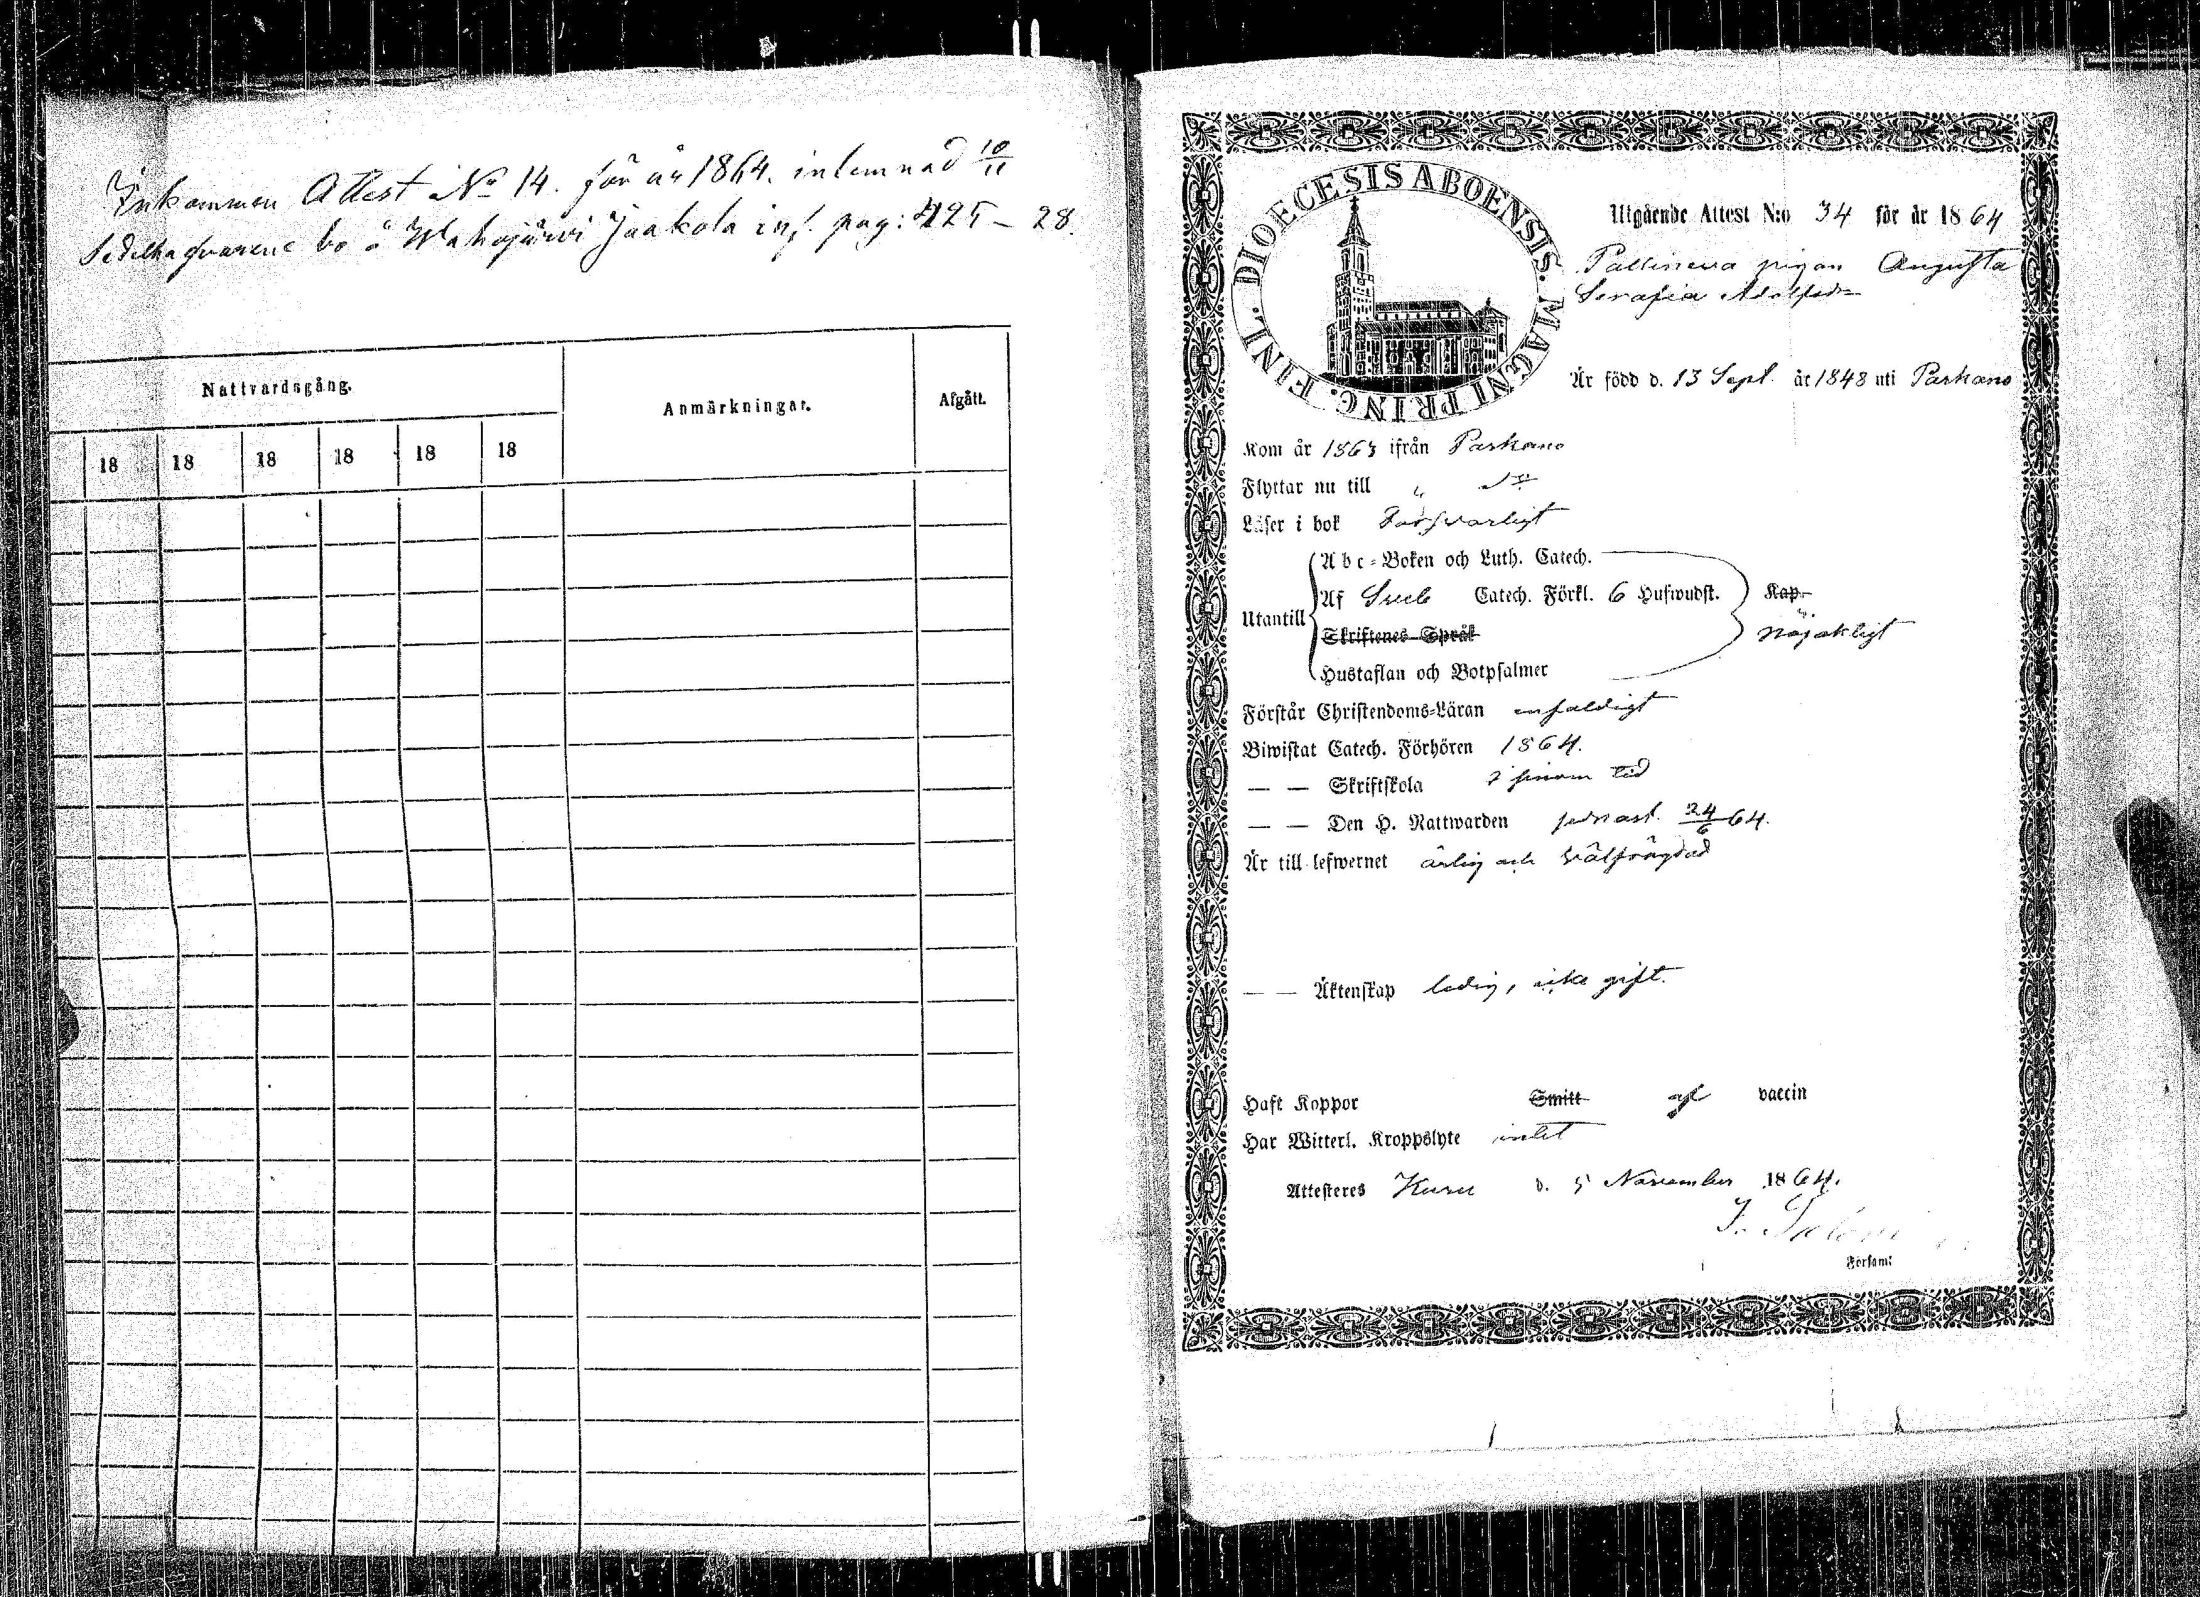 Inkommen Attest No 14. för år 1864. inlemnad 10/11
Sedelhafvarene bo å Wahojärvi Jaakola inf. pag: 425 - 28.
Nattvardsgång.
Anmärkningar.
Afgått.
18 18 18 18 18 18
DIOECESIS ABOENSIS. MAGNI PRINC. FINL.
Utgående Attest N:o 34 för år 1864
pigan Augusta
Serafia Adolfsdr
Är född d. 13 Sept. år 1848 uti Parkano
Kom år 1863 ifrån Parkano
Flyttar nu till " do
Läser i bok Försvarligt
Utantill
Abc-Boken och Luth. Catech.
Af Sveb Catech. Förkl. 6 Hufwudst. Kap.
Skriftenes Språk
nöjaktigt
Hustaflan och Botpsalmer
Förstår Christendoms-Läran enfaldigt
Biwistat Catech. Förhören 1864.
— — Skriftskola i sinom tid
— — Den H. Nattwarden sednast. 24/6 64.
Är till lefwernet ärlig och välfrägdad
— — Äktenskap ledig, icke gift.
Haft Koppor Smitt af vaccin
Har Witterl. Kroppslyte intet
Attesteres Kuru d. 5 November 1864.
Församl